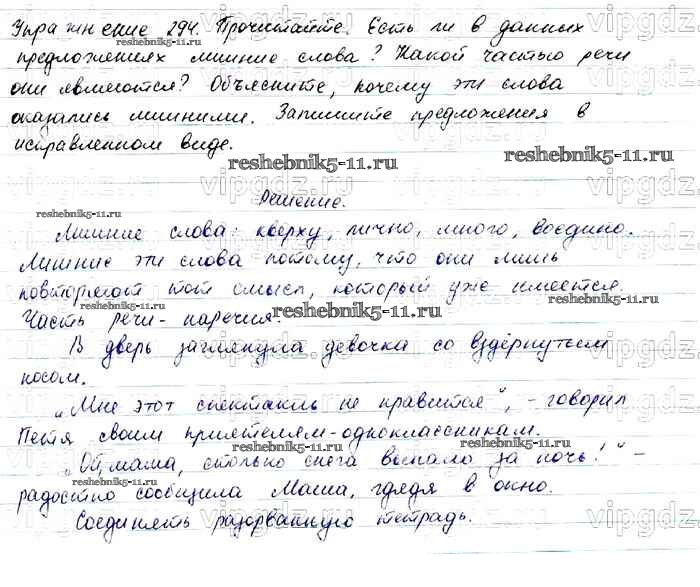 Упражнение 294. Прочитайте. Есть ли в данных
предложениях лишние слова? Какой частью речи
они являются? Объясните, почему эти слова
оказались лишними. Запишите предложения в
исправленном виде.
reshebnik5-11.ru
reshebnik5-11.ru
Решение.
reshebnik5-11.ru
Лишние слова: кверху, лично, много, воедино.
Лишние эти слова потому, что они лишь
повторяют тот смысл, который уже имеется.
Часть речи - наречия.
reshebnik5-11.ru
В дверь заглянула девочка со вздёрнутым
носом.
„Мне этот спектакль не нравится", - говорил
Петя своим приятелям-одноклассникам.
reshebnik5-11.ru
„Ой, мама, столько снега выпало за ночь!" -
радостно сообщила Маша, глядя в окно.
reshebnik5-11.ru
Соединять разорванную тетрадь.
reshebnik5-11.ru
vipgdz